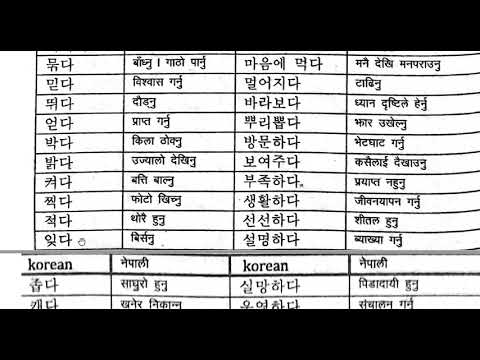 묶다 बाँध्नु । गाठो पार्नु 마음에 먹다 मनै देखि मनपराउनु
믿다 विश्वास गर्नु 멀어지다 टाढिनु
뛰다 दौड्नु 바라보다 ध्यान दृष्टिले हेर्नु
얻다 प्राप्त गर्नु 뿌리뽑다 झार उखेल्नु
박다 किला ठोक्नु 방문하다 भेटघाट गर्नु
밝다 उज्यालो देखिनु 보여주다 कसैलाई देखाउनु
켜다 बत्ति बाल्नु 부족하다. प्रयाप्त नहुनु
찍다 फोटो खिच्नु 생활하다 जीवनयापन गर्नु
적다 थोरै हुनु 선선하다 शीतल हुनु
잊다 बिर्सनु 설명하다 ब्याख्या गर्नु
korean नेपाली korean नेपाली
좁다 साघुरो हुनु 실망하다 पिडादायी हुनु
캐다 खनेर निकान्न 운영하다 संचालन गर्नु